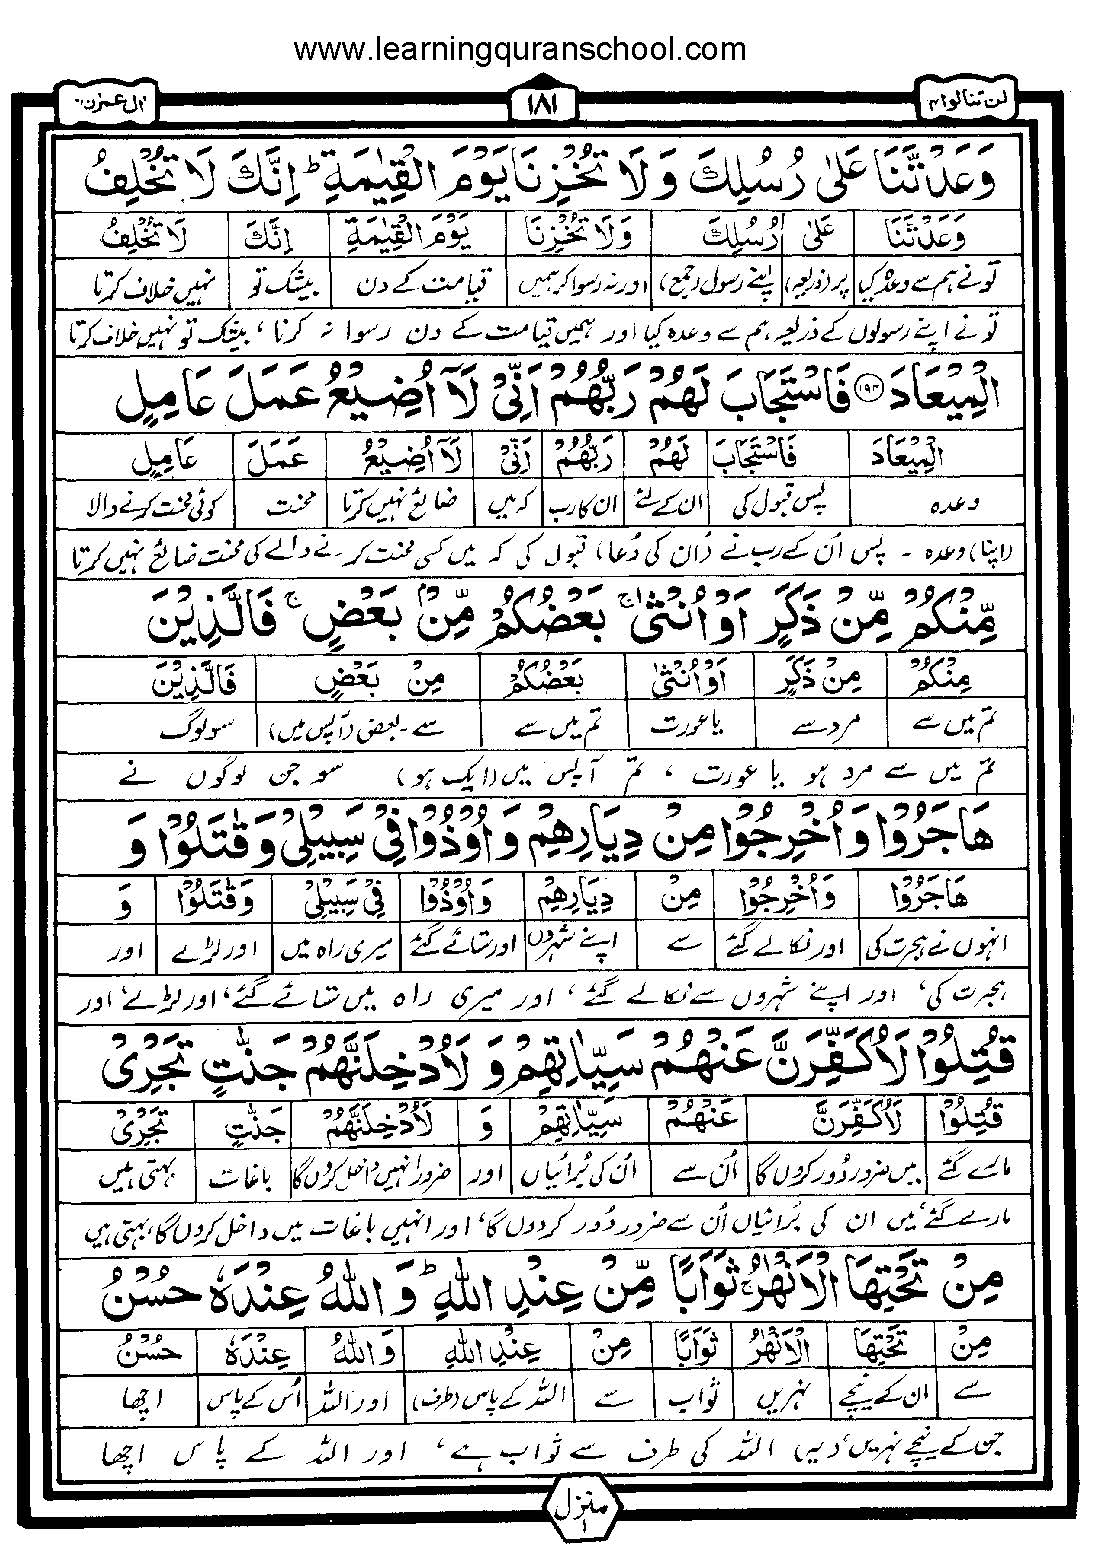 www.learningquranschool.com
لن تنالوا ۴
۱۸۱
اٰل عمرٰن ۳
وَعَدْتَّنَا عَلٰى رُسُلِكَ وَلَا تُخْزِنَا يَوْمَ الْقِيٰمَةِ ؕ اِنَّكَ لَا تُخْلِفُ
وَعَدْتَّنَا عَلٰى رُسُلِكَ وَلَا تُخْزِنَا يَوْمَ الْقِيٰمَةِ اِنَّكَ لَا تُخْلِفُ
تو نے ہم سے وعدہ کیا پر (ذریعہ) اپنے رسول (جمع) اور نہ رسوا کر ہمیں قیامت کے دن بیشک تو نہیں خلاف کرتا
تو نے اپنے رسولوں کے ذریعہ ہم سے وعدہ کیا اور ہمیں قیامت کے دن رسوا نہ کرنا ، بیشک تو نہیں خلاف کرتا
الْمِيْعَادَ ۱۹۴ فَاسْتَجَابَ لَهُمْ رَبُّهُمْ اَنِّىْ لَاۤ اُضِيْعُ عَمَلَ عَامِلٍ
الْمِيْعَادَ فَاسْتَجَابَ لَهُمْ رَبُّهُمْ اَنِّىْ لَاۤ اُضِيْعُ عَمَلَ عَامِلٍ
وعدہ پس قبول کی ان کے لئے ان کا رب کہ میں ضائع نہیں کرتا محنت کوئی محنت کرنے والا
(اپنا) وعدہ ۔ پس اُن کے رب نے (اُن کی دُعا) قبول کی کہ میں کسی محنت کرنے والے کی محنت ضائع نہیں کرتا
مِّنْكُمْ مِّنْ ذَكَرٍ اَوْ اُنْثٰى ۚ بَعْضُكُمْ مِّنْۢ بَعْضٍ ۚ فَالَّذِيْنَ
مِنْكُمْ مِنْ ذَكَرٍ اَوْ اُنْثٰى بَعْضُكُمْ مِنْ بَعْضٍ فَالَّذِيْنَ
تم میں سے مرد سے یا عورت تم میں سے سے۔ بعض (آپس میں) سو لوگ
تم میں سے مرد ہو یا عورت ، تم آپس میں (ایک ہو) سو جن لوگوں نے
هَاجَرُوْا وَاُخْرِجُوْا مِنْ دِيَارِهِمْ وَاُوْذُوْا فِىْ سَبِيْلِىْ وَقٰتَلُوْا وَ
هَاجَرُوْا وَاُخْرِجُوْا مِنْ دِيَارِهِمْ وَاُوْذُوْا فِىْ سَبِيْلِىْ وَقٰتَلُوْا وَ
انہوں نے ہجرت کی اور نکالے گئے سے اپنے شہروں اور ستائے گئے میری راہ میں اور لڑے اور
ہجرت کی، اور اپنے شہروں سے نکالے گئے ، اور میری راہ میں ستائے گئے، اور لڑے، اور
قُتِلُوْا لَاُكَفِّرَنَّ عَنْهُمْ سَيِّاٰتِهِمْ وَلَاُدْخِلَنَّهُمْ جَنّٰتٍ تَجْرِىْ
قُتِلُوْا لَاُكَفِّرَنَّ عَنْهُمْ سَيِّاٰتِهِمْ وَ لَاُدْخِلَنَّهُمْ جَنّٰتٍ تَجْرِىْ
مارے گئے میں ضرور دُور کروں گا اُن سے اُن کی بُرائیاں اور ضرور انہیں داخل کروں گا باغات بہتی ہیں
مارے گئے، میں ان کی بُرائیاں اُن سے ضرور دُور کردوں گا، اور انہیں باغات میں داخل کروں گا، بہتی ہیں
مِنْ تَحْتِهَا الْاَنْهٰرُ ۚ ثَوَابًا مِّنْ عِنْدِ اللّٰهِ ؕ وَاللّٰهُ عِنْدَهٗ حُسْنُ
مِنْ تَحْتِهَا الْاَنْهٰرُ ثَوَابًا مِنْ عِنْدِ اللّٰهِ وَاللّٰهُ عِنْدَهٗ حُسْنُ
سے ان کے نیچے نہریں ثواب سے اللہ کے پاس (طرف) اور اللہ اُس کے پاس اچھا
جن کے نیچے نہریں، (یہ) اللہ کی طرف سے ثواب ہے، اور اللہ کے پاس اچھا
منزل ۱